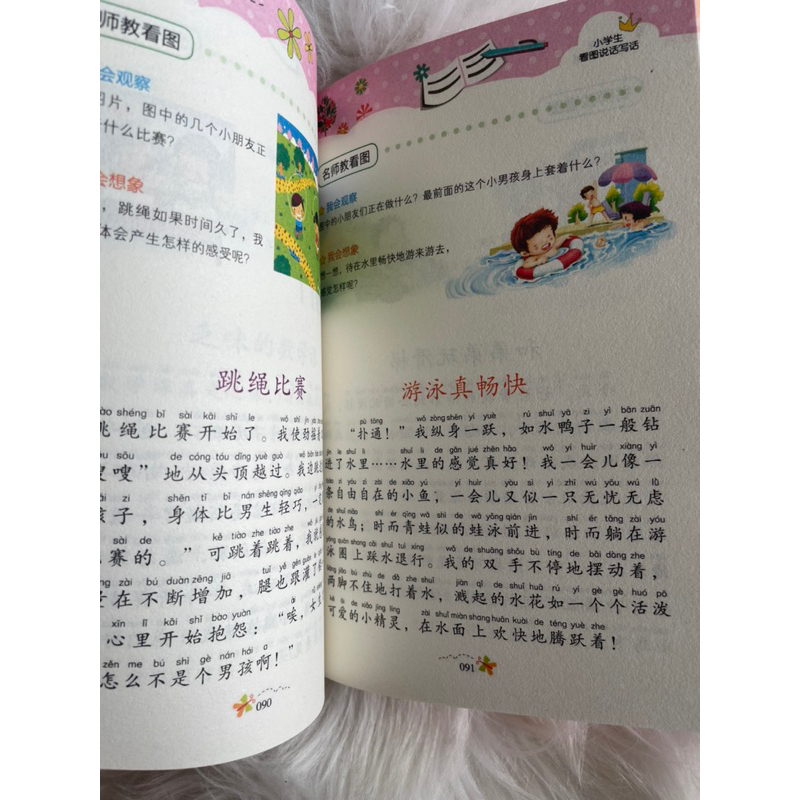 名师教看图
会观察
图片，图中的几个小朋友正
什么比赛？
会想象
，跳绳如果时间久了，我
体会产生怎样的感受呢？
跳绳比赛
shéng bǐ sài kāi shǐ le
跳绳比赛开始了。我使劲
sōu de cóng tóu dǐng yuè guò
嗖”地从头顶越过。我边跳
zi shēn tǐ bǐ nán shēng qīng qiǎo
孩子，身体比男生轻巧，一
sài de kě tiào zhe tiào zhe
比赛的。”可跳着跳着，我
zài bú duàn zēng jiā tuǐ yě
在不断增加，腿也跟灌了
xīn lǐ kāi shǐ bào yuàn
心里开始抱怨：“唉，
zěn me bú shì gè nán hái a
怎么不是个男孩啊！”
090
小学生
看图说话写话
名师教看图
我会观察
图中的小朋友们正在做什么？最前面的这个小男孩身上套着什么？
我会想象
想一想，待在水里畅快地游来游去，
感觉怎样呢？
游泳真畅快
pū tōng wǒ zòng shēn yí yuè rú shuǐ yā zi yì bān zuān
“扑通！”我纵身一跃，如水鸭子一般钻
jìn le shuǐ lǐ shuǐ lǐ de gǎn jué zhēn hǎo wǒ yí huìr xiàng yì
进了水里……水里的感觉真好！我一会儿像一
tiáo zì yóu zì zài de xiǎo yú yí huìr yòu sì yì zhī wú yōu wú lǜ
条自由自在的小鱼，一会儿又似一只无忧无虑
de shuǐ niǎo shí ér qīng wā shì de wā yǒng qián jìn shí ér tǎng zài yóu
的水鸟；时而青蛙似的蛙泳前进，时而躺在游
yǒng quān shàng cǎi shuǐ tuì xíng wǒ de shuāng shǒu bù tíng de bǎi dòng zhe
泳圈上踩水退行。我的双手不停地摆动着，
liǎng jiǎo bú zhù de dǎ zhe shuǐ jiàn qǐ de shuǐ huā rú yí gè gè huó pō
两脚不住地打着水，溅起的水花如一个个活泼
kě ài de xiǎo jīng líng zài shuǐ miàn shang huān kuài de téng yuè zhe
可爱的小精灵，在水面上欢快地腾跃着！
091